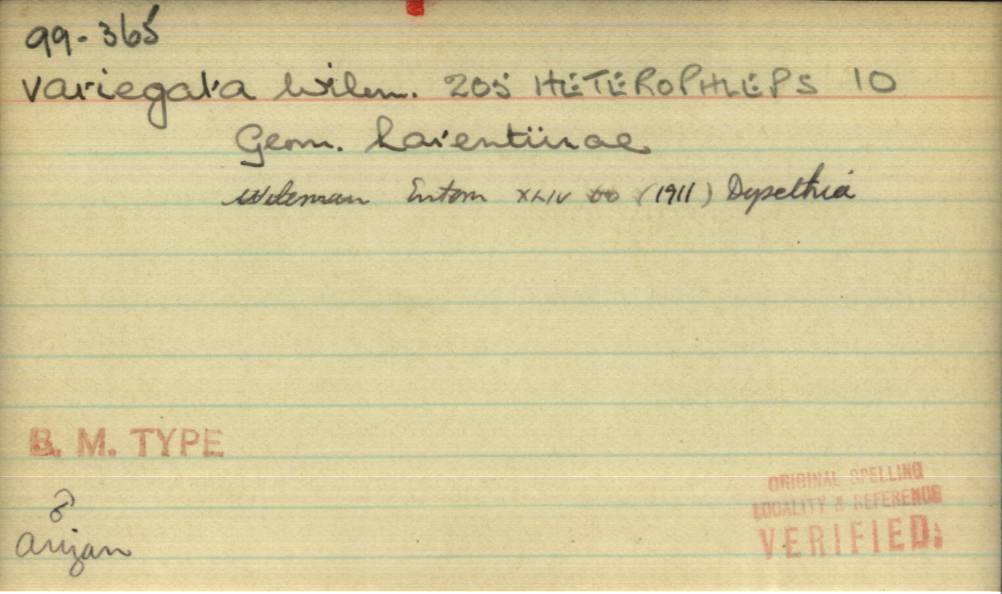 99-365
variegata Wilem. 205 HETEROPHLEPS 10
Geom. Larentiinae
Wileman Entom XLIV (1911) Dysethia
B. M. TYPE
♂
Arizan
ORIGINAL SPELLING
LOCALITY & REFERENCE
VERIFIED.